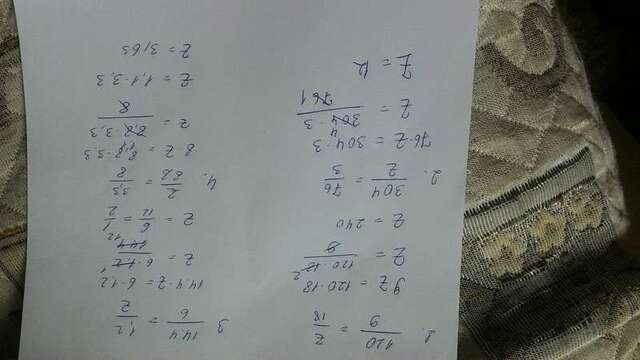 1. 120/9 = z/18
9z = 120·18
z = 120·18 2/9
z = 240
2. 304/z = 76/3
76·z = 304·3
z = 304 4·3/76 1
z = 12
3 14.4/6 = 1,2/z
14.4·z = 6·1.2
z = 6·1.2 1/14.4 12
z = 6/12 = 1/2
4. z/8.8 = 3,3/8
8z = 8,8·3.3
z = 8,8 1,1·3,3/8
z = 1,1·3,3
z = 3,63